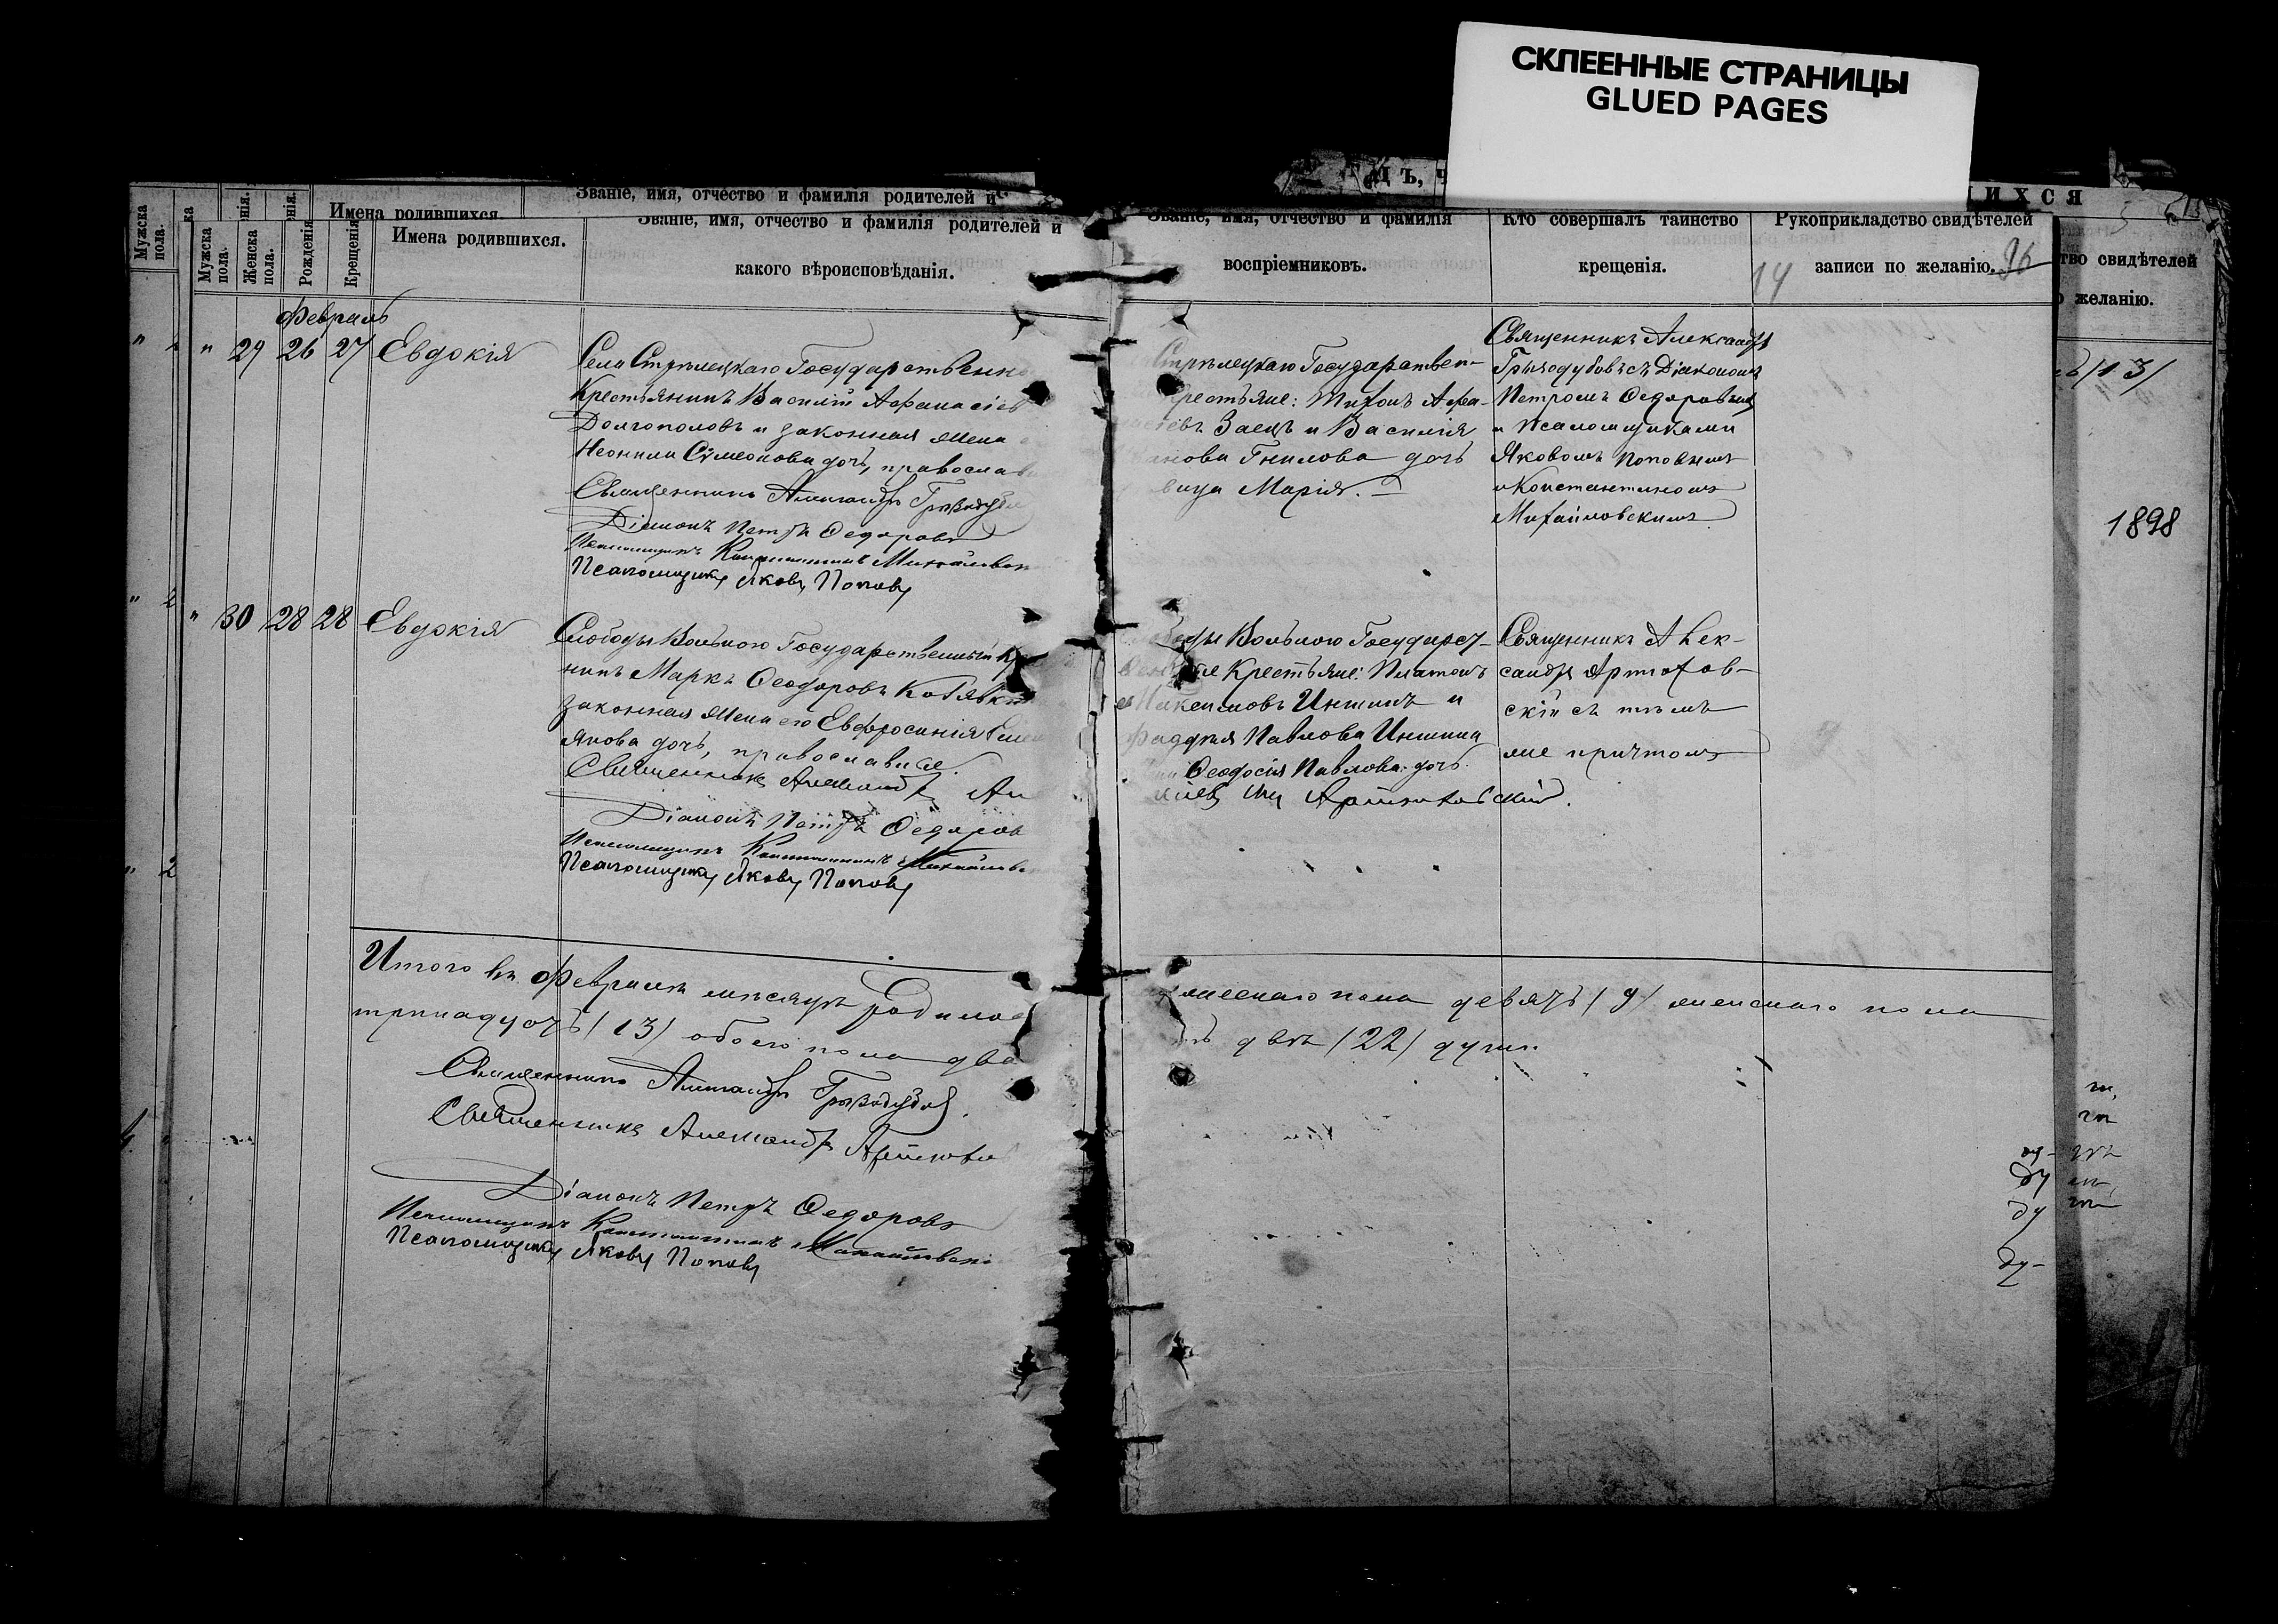 СКЛЕЕННЫЕ СТРАНИЦЫ
GLUED PAGES
Мужска пола.
Имена родившихся
Званіе, имя, отчество и фамилія родителей и
ИХСЯ
Мужска пола.
Женска пола.
Рожденія
Крещенія
Имена родившихся.
Званіе, имя, отчество и фамилія родителей и
какого вѣроисповѣданія.
Званіе, имя, отчество и фамилія
воспріемниковъ.
Кто совершалъ таинство
крещенія.
Рукоприкладство свидѣтелей
записи по желанію.
14
96
тво свидѣтелей
желанію.
Февраль
" 29 26 27 Евдокія
Села Стрѣлецкаго Государственн
Крестьянинъ Василій Афанасіев
Долгополовъ и законная жена
Неонила Сѵмеонова дочь, православ
Священникъ Александръ
Діаконъ Петръ Федоровъ
Псаломщикъ Константинъ Михайловск
Псаломщикъ Яковъ Поповъ
Стрѣлецкаго Государствен-
рестьяне: Тихонъ Афа-
іевъ Заецъ и Василія
нова Гнилова дочь
вица Марія.
Священникъ Александръ
Грызодубовъ съ Діакономъ
Петромъ Федоровымъ
и Псаломщиками
Яковомъ Поповымъ
и Константиномъ
Михайловскимъ.
/13/
1898
" 30 28 28 Евдокія
Слободы Вольною Государственный Кр
нинъ Маркъ Феодоровъ Кобяк
законная жена его Евфросинія
Якова дочь, православные.
Священникъ Александръ
Діаконъ Петръ Федоров
Псаломщикъ Константинъ Михайлов
Псаломщикъ Яковъ Поповъ
оды Вольною Государст-
ые Крестьяне: Платонъ
Максимовъ Иншинъ и
Фаддея Павлова Иншина
Феодосія Павлова дочь.
Артюховскій.
Священникъ Алек-
сандръ Артюхов-
скій съ тѣмъ
же причтомъ
Итого въ Февралѣ мѣсяцѣ родилос
мужескаго пола девять /9/ женскаго пола
тринадцать /13/ обоего пола два
ть двѣ /22/ души
Священникъ Александръ Грызодубовъ.
Священникъ Александръ Артюхов
Діаконъ Петръ Федоровъ
Псаломщикъ Константинъ Михайловскі
Псаломщикъ Яковъ Поповъ